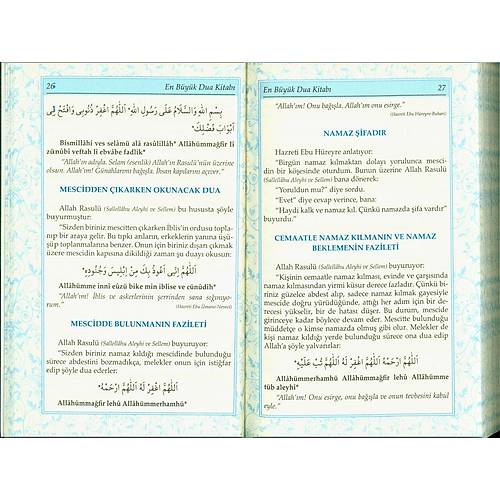 26 En Büyük Dua Kitabı
بِسْمِ اللهِ وَالسَّلَامُ عَلَى رَسُولِ اللهِ اَللّٰهُمَّ اغْفِرْ ذُنُوبِى وَافْتَحْ لِى
اَبْوَابَ فَضْلِكَ*
Bismillâhi ves selâmü alâ rasûlillâh* Allâhümmağfir lî
zünûbî veftah lî ebvâbe fadlik*
"Allah'ın adıyla. Selam (esenlik) Allah'ın Rasulü'nün üzerine
olsun. Allah'ım! Günahlarımı bağışla. İhsan kapılarını açıver."
MESCİDDEN ÇIKARKEN OKUNACAK DUA
Allah Rasulü (Sallellâhu Aleyhi ve Sellem) bu hususta şöyle
buyurmuştur:
"Sizden biriniz mescitten çıkarken İblis'in ordusu topla-
nıp bir araya gelir. Bu tıpkı arıların, erkeklerin yanına üşü-
şüp toplanmalarına benzer. Onun için biriniz dışarı çıkmak
üzere mescidin kapısına dikildiği zaman şu duayı okusun:
اَللّٰهُمَّ اِنِّى اَعُوذُ بِكَ مِنْ اِبْلِيسَ وَجُنُودِهِ*
Allâhümme innî eûzü bike min iblîse ve cünûdih*
"Allah'ım! İblis ve askerlerinin şerrinden sana sığınıyo-
rum." (Hazreti Ebu Ümame-Nevevi)
MESCİDDE BULUNMANIN FAZİLETİ
Allah Rasulü (Sallellâhu Aleyhi ve Sellem) buyuruyor:
"Sizden biriniz namaz kıldığı mescidinde bulunduğu
sürece abdestini bozmadıkça, melekler onun için istiğfar
edip şöyle dua ederler:
اَللّٰهُمَّ اغْفِرْ لَهُ اَللّٰهُمَّ ارْحَمْهُ*
Allâhümmağfir lehû Allâhümmerhamhü*
En Büyük Dua Kitabı 27
"Allah'ım! Onu bağışla. Allah'ım onu esirge."
(Hazreti Ebu Hüreyre-Buhari)
NAMAZ ŞİFADIR
Hazreti Ebu Hüreyre anlatıyor:
"Birgün namaz kılmaktan dolayı yorulunca mesci-
din bir köşesinde oturdum. Bunun üzerine Allah Rasulü
(Sallellâhu Aleyhi ve Sellem) bana dönerek:
"Yoruldun mu?" diye sordu.
"Evet" diye cevap verince, bana:
"Haydi kalk ve namaz kıl. Çünkü namazda şifa vardır"
buyurdu."
CEMAATLE NAMAZ KILMANIN VE NAMAZ
BEKLEMENİN FAZİLETİ
Allah Rasulü (Sallellâhu Aleyhi ve Sellem) buyuruyor:
"Kişinin cemaatle namaz kılması, evinde ve çarşısında
namaz kılmasından yirmi küsur derece fazladır. Çünkü bi-
riniz güzelce abdest alıp, sadece namaz kılmak gayesiyle
mescide doğru yürüdüğünde, attığı her adım için bir de-
recesi yükselir, bir de hatası düşer. Bu durum, mescide
girinceye kadar böylece devam eder. Mescitte bulunduğu
müddetçe o kimse namazda olmuş gibi olur. Melekler de
kişi namaz kıldığı yerde bulunduğu sürece ona dua edip
Allah'a şöyle yalvarırlar:
اَللّٰهُمَّ ارْحَمْهُ اَللّٰهُمَّ اغْفِرْ لَهُ اَللّٰهُمَّ تُبْ عَلَيْهِ*
Allâhümmerhamhü Allâhümmağfir lehû Allâhümme
tüb aleyhi*
"Allah'ım! Onu esirge, onu bağışla ve onun tevbesini kabul
eyle."